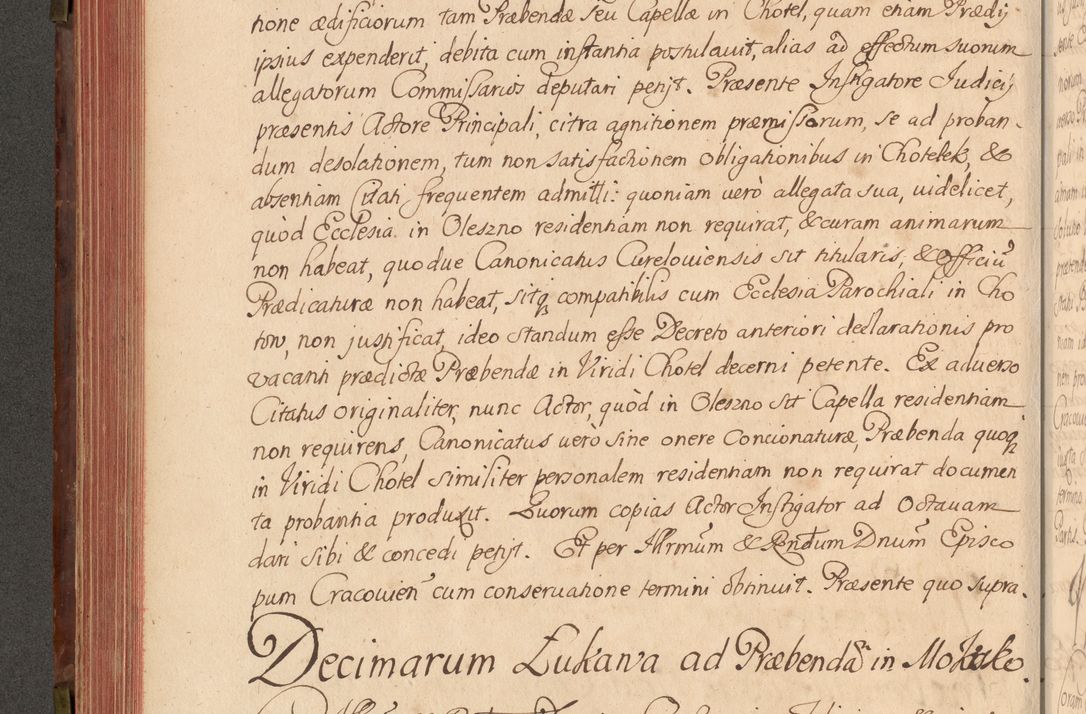 tione ædificiorum tam Præbendæ seu Capellæ in Chotel, quam etiam Prædij
ipsius expenderit, debita cum instantia postulavit, alias ad effectum suorum
allegatorum Commissarios deputari petijt. Præsente Instigatore Iudicij
præsentis Actore Principali, citra agnitionem præmissorum, se ad proban-
dum desolationem, tum non satisfactionem obligationibus in Chotelek, &
absentiam Citati frequentem admitti: quoniam verò allegata sua, videlicet,
quòd Ecclesia in Oleszno residentiam non requirat, & curam animarum
non habeat, quodue Canonicatus Curelouiensis sit titularis, & Officiũ
Prædicaturæ non habeat, sitq; compatibilis cum Ecclesia Parochiali in Cho
tow, non justificat, ideo standum esse Decreto anteriori declarationis pro
vacanti prædictæ Præbendæ in Viridi Chotel decerni petente. Ex adverso
Citatus originaliter, nunc Actor, quòd in Oleszno sit Capella residentiam
non requirens, Canonicatus verò sine onere Concionaturæ, Præbenda quoq;
in Viridi Chotel similiter personalem residentiam non requirat documen
ta probantia produxit. Quorum copias Actor Instigator ad Octauam
dari sibi & concedi petijt. Et per Illrmũm & Rendum Dnũm Episco
pum Cracouien̄ cum conseruatione termini obtinuit. Præsente quo supra.
Decimarum Łukawa ad Præbendã in Mokrsko.